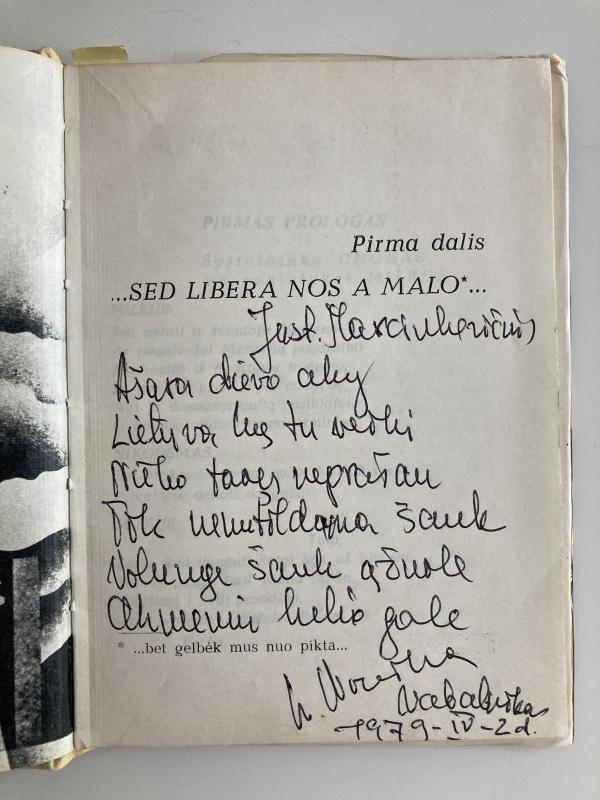 Pirma dalis
...SED LIBERA NOS A MALO*...
Just. Marcinkevičius
Ašara dievo aky
Lietuva ką tu veiki
Nieko tavęs neprašau
Tik nenutildama šauk
Volunge šauk ąžuole
Akmenin kelio gale
* ...bet gelbėk mus nuo pikta...
Vabalninkas
1979-IV-2d.
PIRMAS PROLOGAS